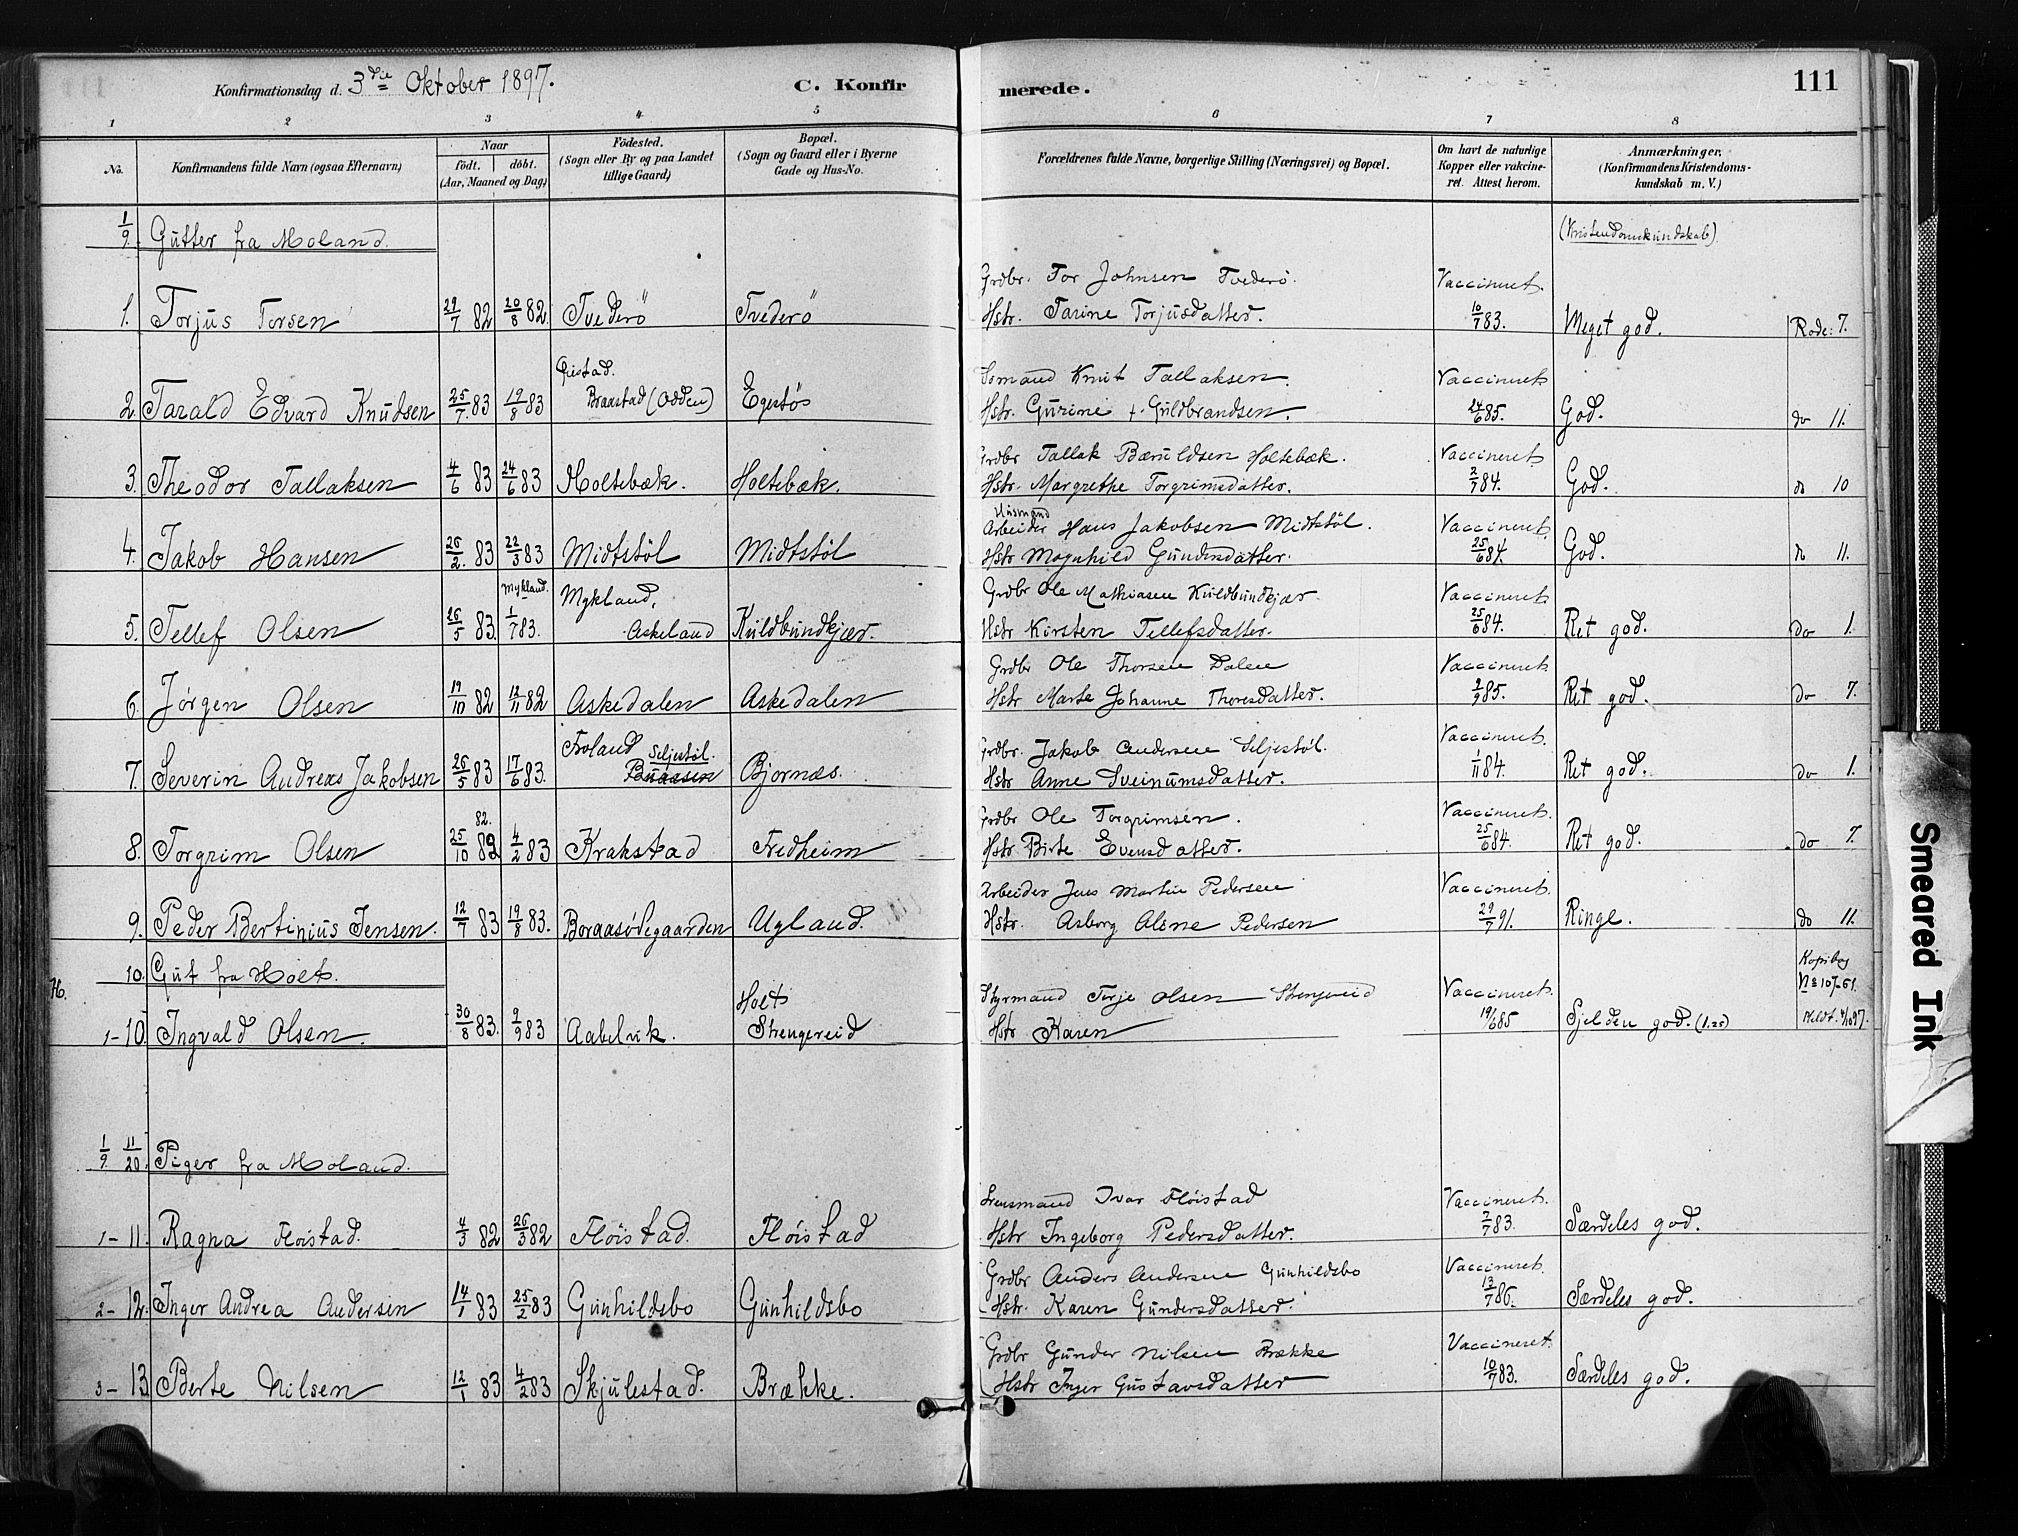 Konfirmationsdag d. 3die Oktober 1897. C. Konfirmerede. 111
1 2 3 4 5 6 7 8
No. Konfirmandens fulde Navn (ogsaa Efternavn) Naar födt. döbt. (Aar, Maaned og Dag) Födested. (Sogn eller By og paa Landet tillige Gaard) Bopæl. (Sogn og Gaard eller i Byerne Gade og Hus-No. Forældrenes fulde Navne, borgerlige Stilling (Næringsvei) og Bopæl. Om havt de naturlige Kopper eller vakcineret. Attest herom. Anmærkninger. (Konfirmandens Kristendomskundskab m. V.)
1/9. Gutter fra Moland. (Kristendomskundskab)
Grdbr. Tor Johnsen Tvederö. Vaccineret.
1. Torjus Torsen 29/7 82 20/8 82. Tvederö Tvederö Hstr. Tarine Torjusdatter. 10/7 83. Meget god. Rode: 7.
Knut Tallaksen. Vaccineret
2. Tarald Edvard Knudsen 25/7. 83 19/8 83 Braastad (Odden) Egestøs Hstr. Gurine f. Guldbrandsen. 24/6 85. God. do 11.
Grdbr Tallak Bæruldsen Holtebæk. Vaccineret.
3. Theodor Tallaksen 4/6 83 24/6 83 Holtebæk. Holtebæk. Hstr. Margrethe Torgrimsdatter. 2/7 84. God. do 10
Husmand
Arbeider Hans Jakobsen Midtstöl. Vaccineret.
4. Jakob Hansen 26/2. 83 22/3 83 Midtstöl Midtstöl Hstr Magnhild Gundersdatter. 25/6 84. God. do 11.
Mykland. Mykland, Grdbr Ole Mathiasen Kuldbundkjær. Vaccineret.
5. Tellef Olsen 26/5 83. 1/7 83. Askeland Kuldbundkjær. Hstr Kirsten Tellefsdatter. 25/6 84. Ret god. do 1.
Grdbr Ole Thorsen Dalen Vaccineret.
6. Jørgen Olsen 19/10 82 12/11 82 Askedalen Askedalen Hstr Marte Johanne Thoresdatter. 2/9 85. Ret god. do 7.
Froland Seljestöl. Grdbr. Jakob Andersen Seljestöl. Vaccineret.
7. Severin Andreas Jakobsen 26/5 83 17/6 83. Buaasen Bjornæs. Hstr Anne Sveinumsdatter. 1/11 84. Ret god. do 1.
82. Grdbr Ole Torgrimsen. Vaccineret.
8. Torgrim Olsen 25/10 82 4/2 83 Krakstad Fredheim Hstr Birte Evensdatter. 25/6 84. Ret god. do 7.
Arbeider Jens Martin Pedersen Vaccineret.
9. Peder Bertinius Jensen. 12/7 83 19/8 83. Boraasødegaarden Ugland. Hstr. Asborg Aline Pedersen 29/7 91. Ringe. do 11.
10. Gut fra Holt. Kopibog
H. Holt Styrmand Terje Olsen Strengereid Vaccineret. No 107-61.
1-10. Ingvald Olsen. 30/8 83. 9/9 83 Aabelvik. Strengereid Hstr Karen 19/6 85 Sjelden god. (1.25) Meldt. 4/10 97.
1/9 11/20. Piger fra Moland.
Lensmand Ivar Fløistad Vaccineret.
1-11. Ragna Fløistad. 4/3 82 26/3 82 Flöistad. Fløistad Hstr Ingeborg Pedersdatter. 7/7 83. Særdeles god.
Grdbr Anders Andersen Gunhildsbo Vaccineret.
2-12. Inger Andrea Andersen 14/1 83 25/2 83 Gunhildsbo Gunhildsbo Hstr. Karen Gundersdatter. 13/7 86. Særdeles god.
Grdbr Gunder Nilsen Brække Vaccineret.
3-13. Berte Nilsen 12/1 83 4/2 83 Skjulestad. Brække. Hstr Inger Gustavsdatter 10/7 83. Særdeles god.
Smeared Ink